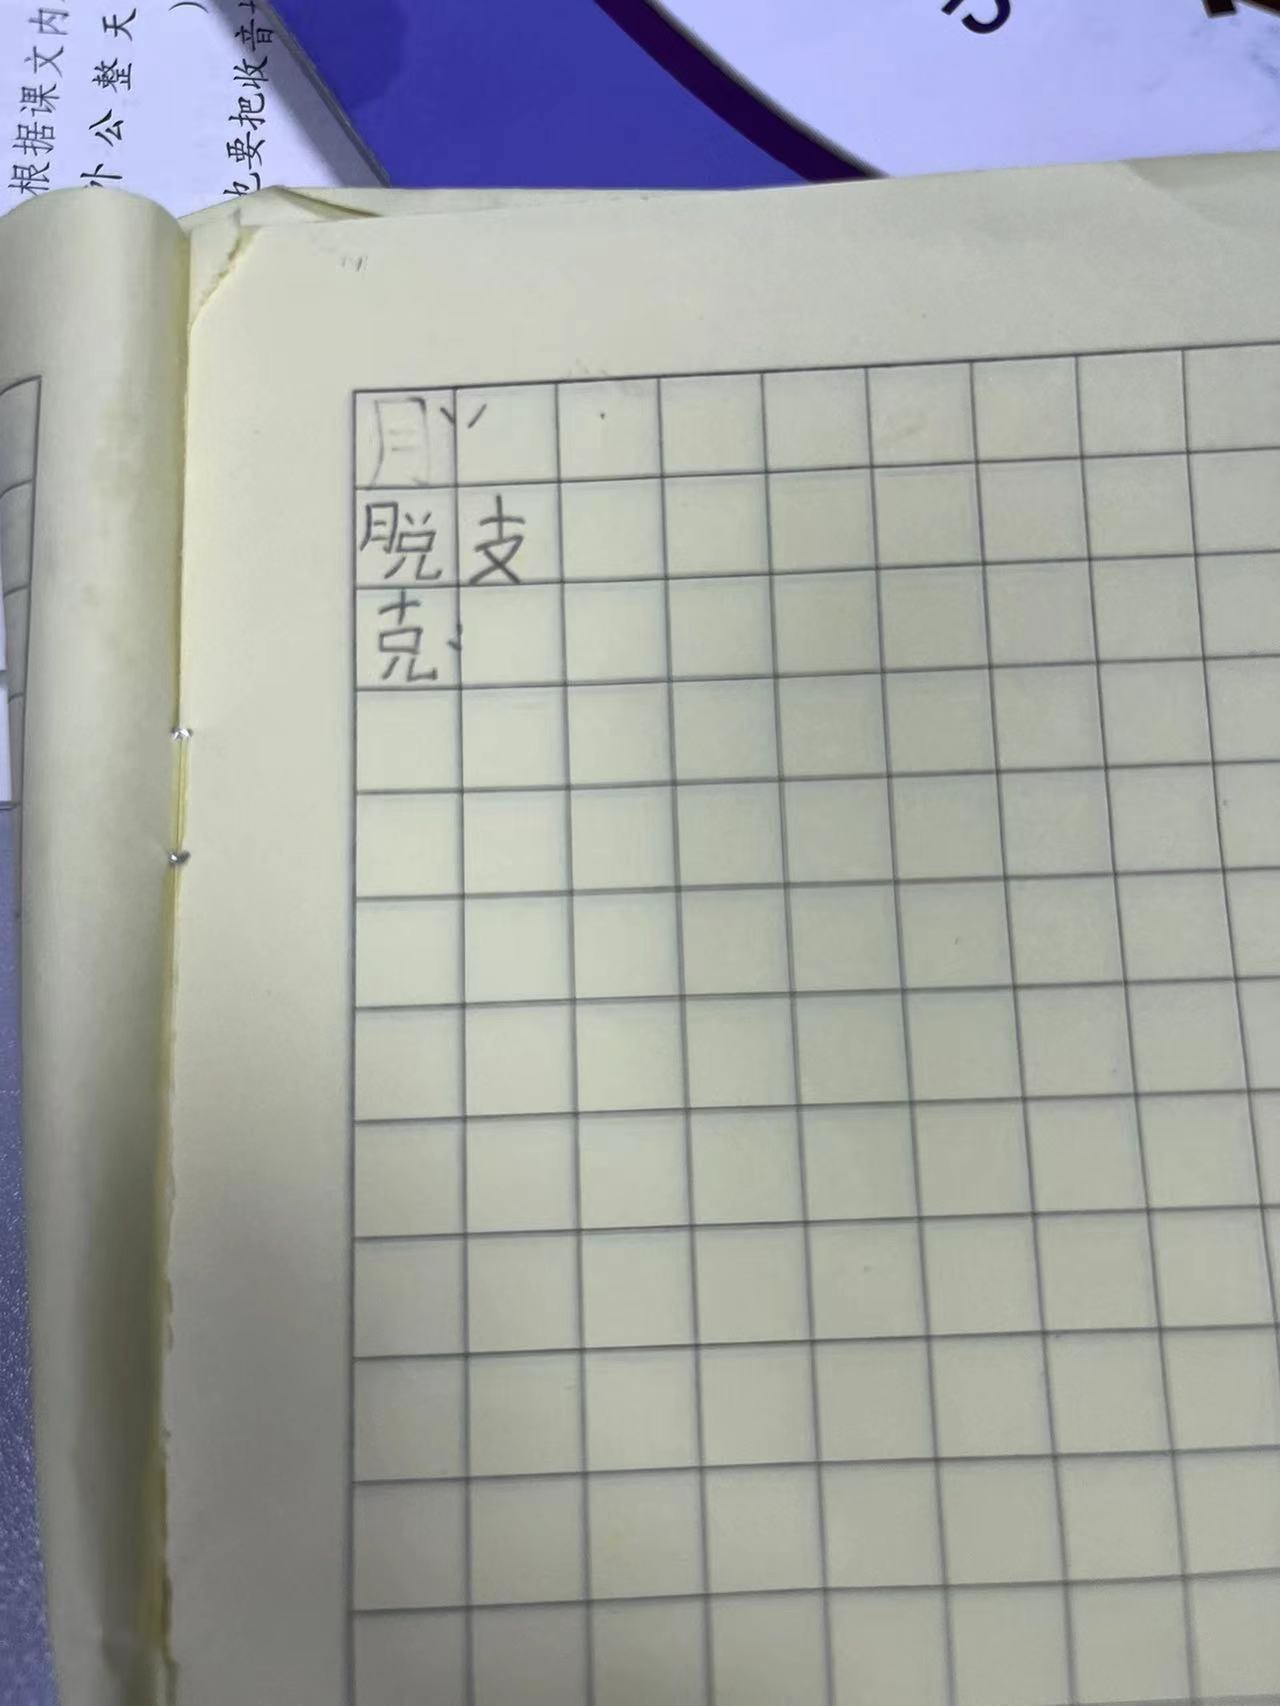 根据课文内
外公整天
)
也要把收音
月
脱支
克